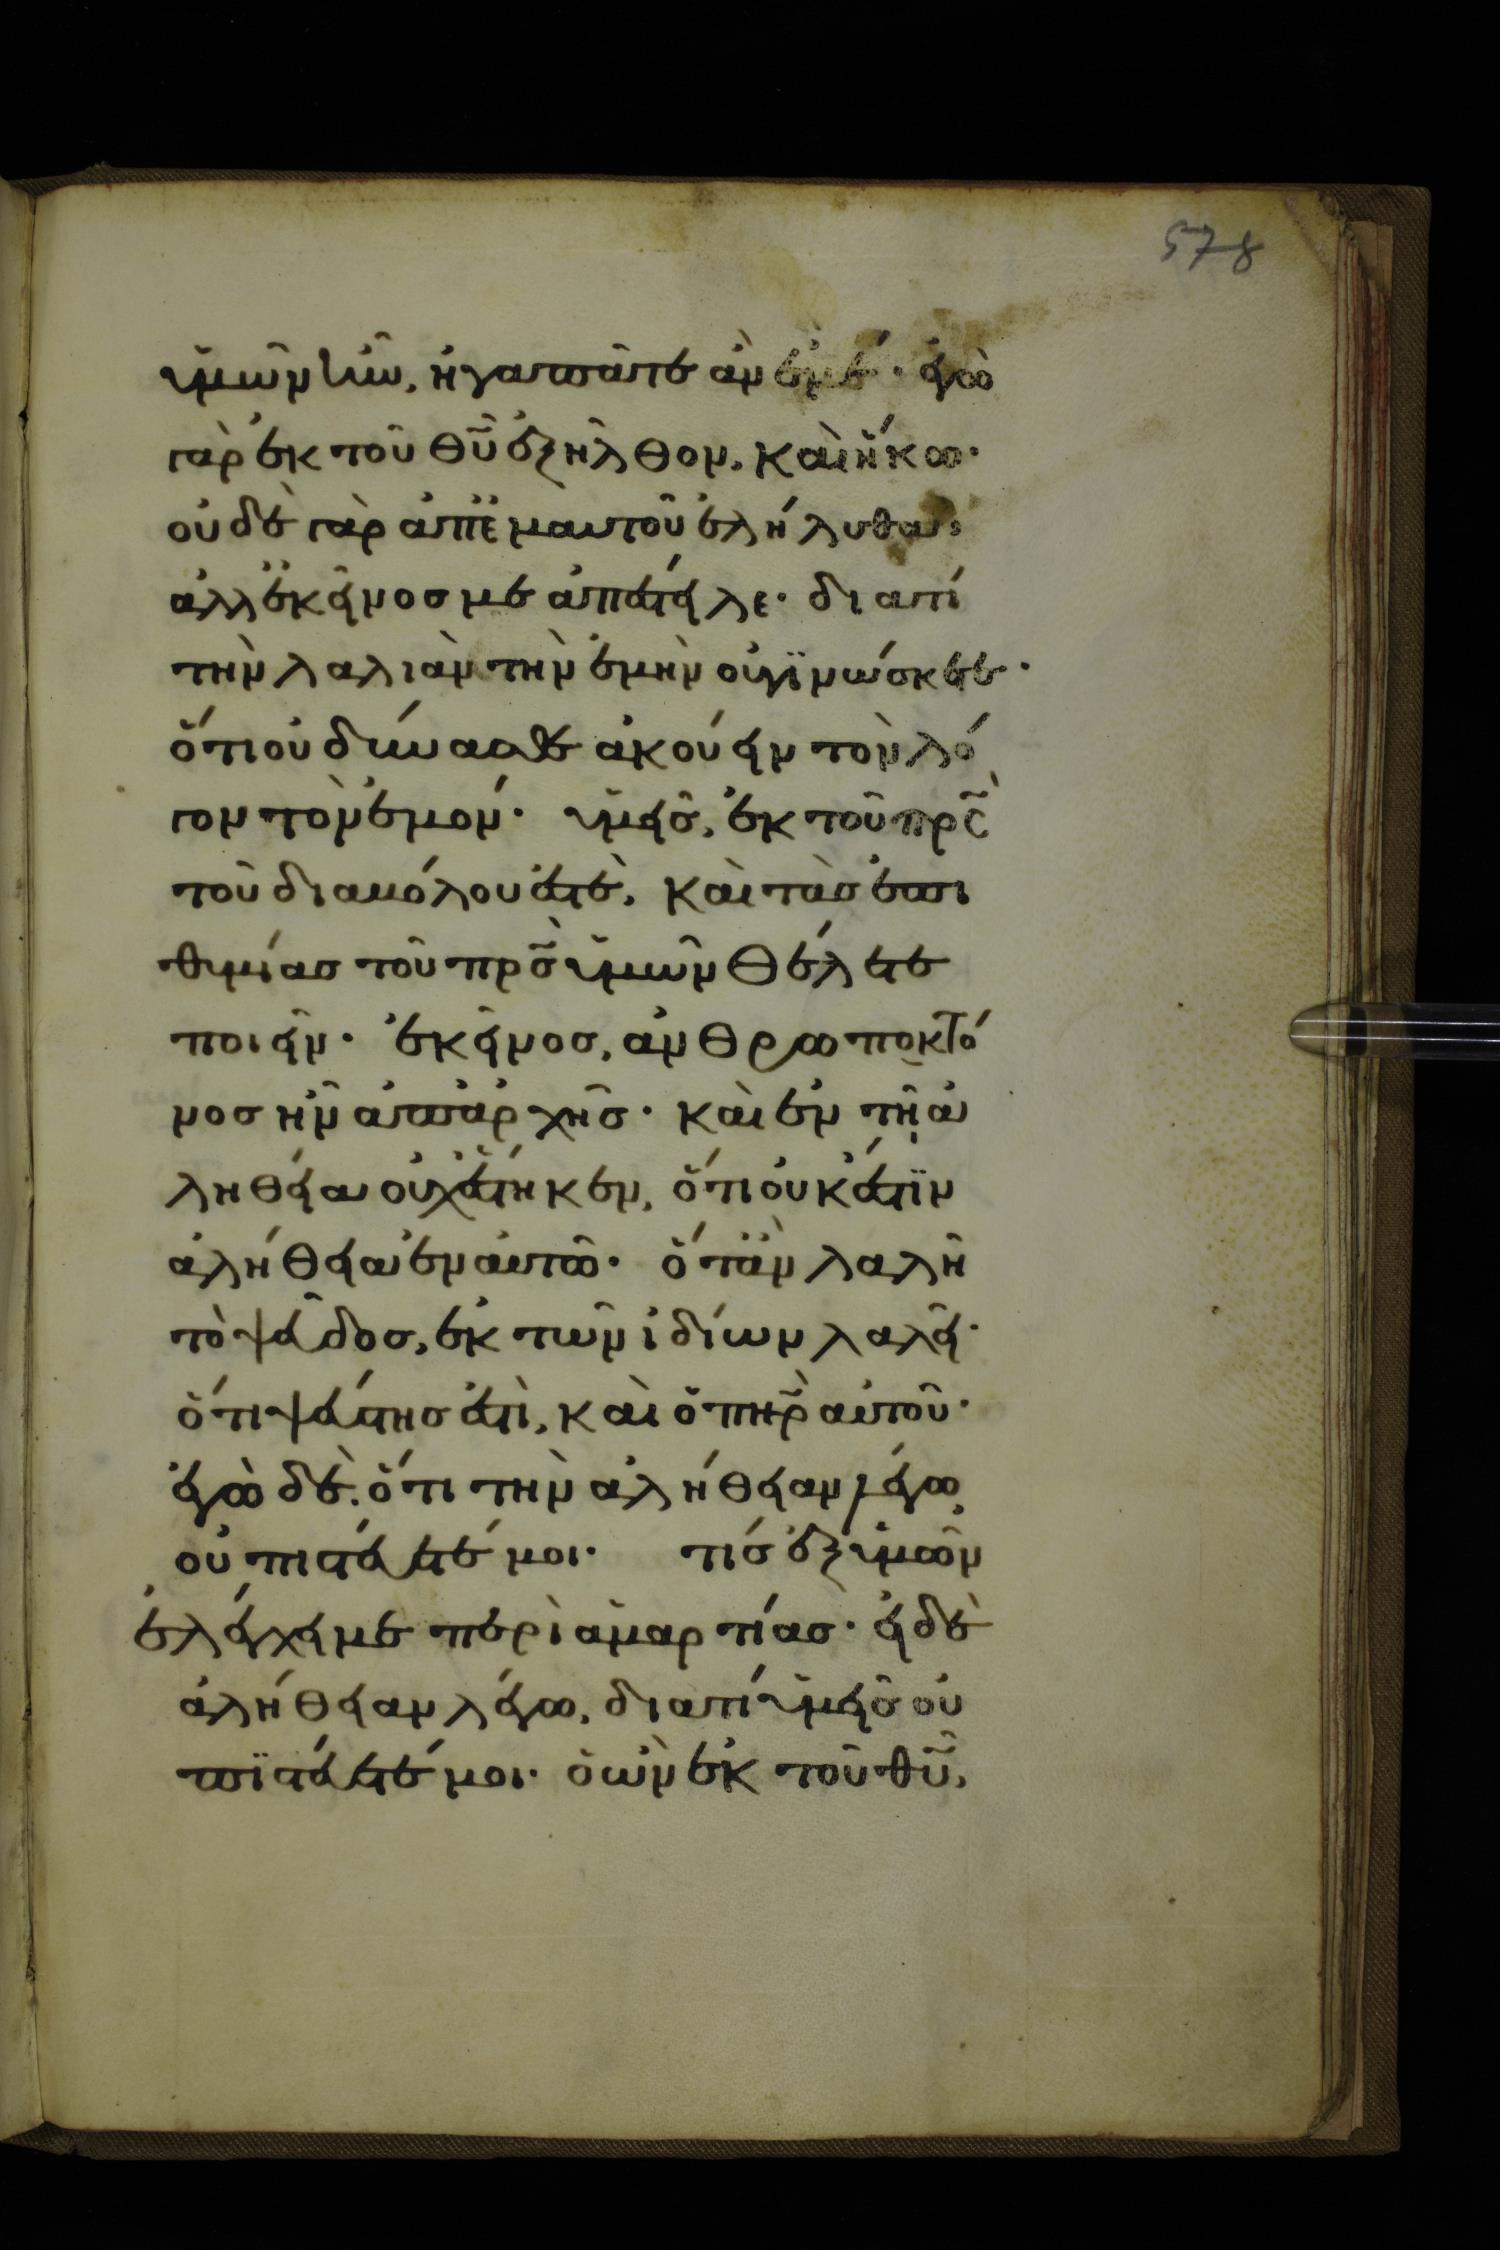 578
ὑμῶν ἦν, ἠγαπᾶτε ἂν ἐμέ· ἐγὼ
γὰρ ἐκ τοῦ θυ ἐξῆλθον, καὶ ἥκω·
οὐδὲ γὰρ ἀπ' ἐμαυτοῦ ἐλήλυθα,
ἀλλ' ἐκεῖνος με ἀπέστειλε· διατί
τὴν λαλιὰν τὴν ἐμὴν οὐ γϊνώσκετε·
ὅτι οὐ δύνασθε ἀκούειν τὸν λό
γον τὸν ἐμόν· ὑμεῖς, ἐκ τοῦ πρς
τοῦ διαβόλου ἐστὲ, καὶ τὰς ἐπι
θυμίας τοῦ πρς ὑμῶν θέλετε
ποιεῖν· ἐκεῖνος, ἀνθρωποκτό
νος ἦν ἀπ' ἀρχῆς· καὶ ἐν τῇ ἀ
ληθεία οὐχ ἕστηκεν, ὅτι οὐκ ἔστϊν
ἀλήθεια ἐν αὐτῶ· ὅτ' ἂν λαλῆ
τὸ ψεῦδος, ἐκ τῶν ἰδίων λαλεῖ·
ὅτι ψεύστης ἐστὶ, καὶ ὁ πηρ αὐτοῦ·
ἐγὼ δὲ, ὅτι τὴν ἀλήθειαν λέγω
οὐ πιστεύετέ μοι· τίς ἐξ ὑμῶν
ἐλέγχει με περὶ ἁμαρτίας· εἰ δὲ
ἀλήθειαν λέγω, διατί ὑμεῖς οὐ
πϊστεύετέ μοι· ὁ ὢν ἐκ τοῦ θυ,